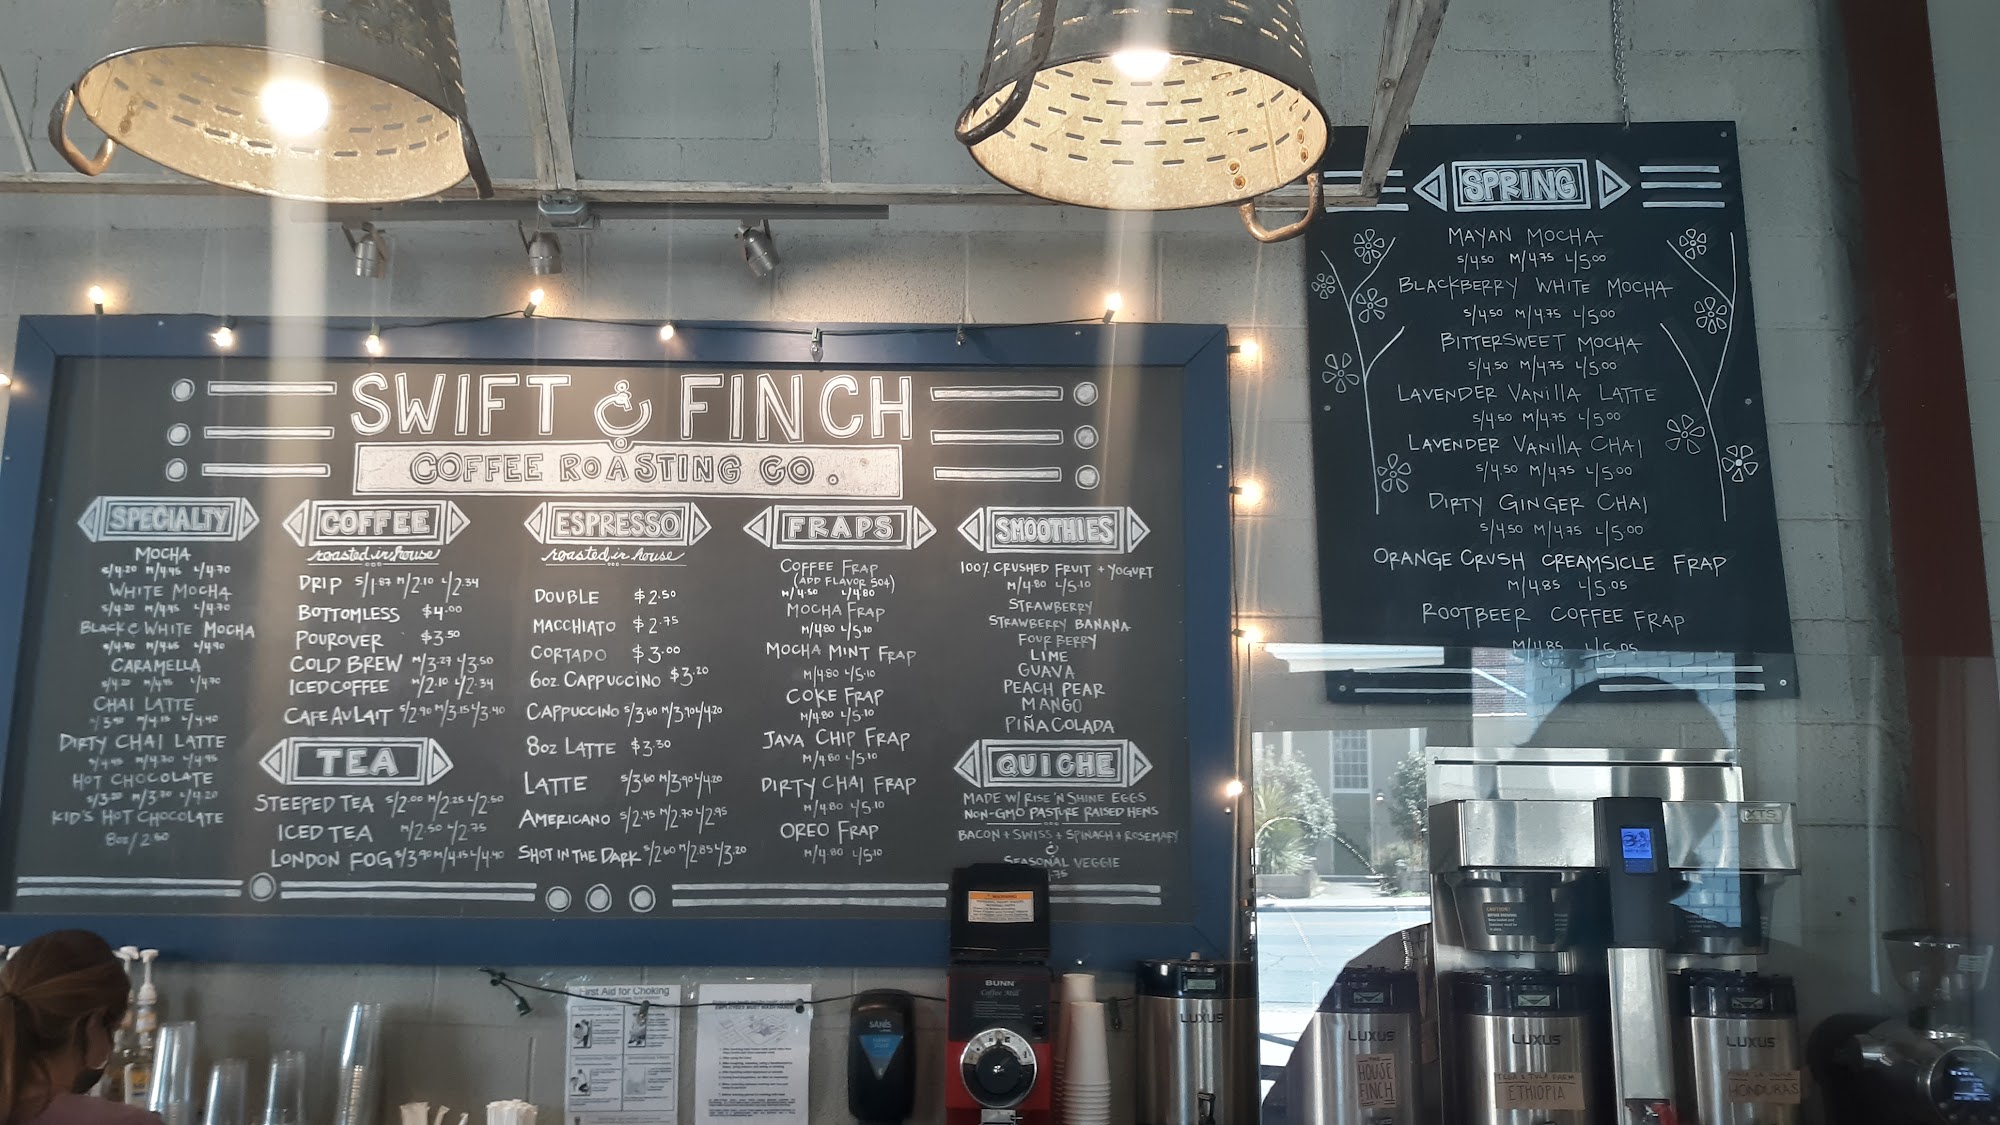 SWIFT & FINCH
COFFEE ROASTING CO.
SPECIALTY
MOCHA
S/4.20 M/4.45 L/4.70
WHITE MOCHA
S/4.20 M/4.45 L/4.70
BLACK & WHITE MOCHA
CARAMELLA
S/4.20 M/4.45 L/4.70
CHAI LATTE
DIRTY CHAI LATTE
S/4.45 M/4.70 L/4.95
HOT CHOCOLATE
S/3.20 M/3.70 L/4.20
KID'S HOT CHOCOLATE
8oz/2.60
COFFEE
roasted in house
DRIP S/1.87 M/2.10 L/2.34
BOTTOMLESS $4.00
POUROVER $3.50
COLD BREW M/3.27 L/3.50
ICED COFFEE M/2.10 L/2.34
CAFE AU LAIT S/2.90 M/3.15 L/3.40
TEA
STEEPED TEA S/2.00 M/2.25 L/2.50
ICED TEA M/2.50 L/2.75
LONDON FOG S/3.90 M/4.15 L/4.40
ESPRESSO
roasted in house
DOUBLE $2.50
MACCHIATO $2.75
CORTADO $3.00
6oz CAPPUCCINO $3.20
CAPPUCCINO S/3.60 M/3.90 L/4.20
8oz LATTE $3.30
LATTE S/3.60 M/3.90 L/4.20
AMERICANO S/2.45 M/2.70 L/2.95
SHOT IN THE DARK S/2.60 M/2.85 L/3.20
FRAPS
COFFEE FRAP
(ADD FLAVOR 50¢)
M/4.50 L/4.80
MOCHA FRAP
M/4.80 L/5.10
MOCHA MINT FRAP
M/4.80 L/5.10
COKE FRAP
M/4.80 L/5.10
JAVA CHIP FRAP
M/4.80 L/5.10
DIRTY CHAI FRAP
M/4.80 L/5.10
OREO FRAP
M/4.80 L/5.10
SMOOTHIES
100% CRUSHED FRUIT + YOGURT
M/4.80 L/5.10
STRAWBERRY
STRAWBERRY BANANA
FOUR BERRY
LIME
GUAVA
PEACH PEAR
MANGO
PIÑA COLADA
QUICHE
MADE W/ RISE 'N SHINE EGGS
NON-GMO PASTURE RAISED HENS
BACON + SWISS + SPINACH + ROSEMARY
&
SEASONAL VEGGIE
SPRING
MAYAN MOCHA
S/4.50 M/4.75 L/5.00
BLACKBERRY WHITE MOCHA
S/4.50 M/4.75 L/5.00
BITTERSWEET MOCHA
S/4.50 M/4.75 L/5.00
LAVENDER VANILLA LATTE
S/4.50 M/4.75 L/5.00
LAVENDER VANILLA CHAI
S/4.50 M/4.75 L/5.00
DIRTY GINGER CHAI
S/4.50 M/4.75 L/5.00
ORANGE CRUSH CREAMSICLE FRAP
M/4.85 L/5.05
ROOTBEER COFFEE FRAP
M/4.85 L/5.05
First Aid for Choking
SANIS
WARNING
BUNN
Coffee Mill
XTS
CAUTION
LUXUS
LUXUS
HOUSE
FINCH
LUXUS
ETHIOPIA
LUXUS
HONDURAS